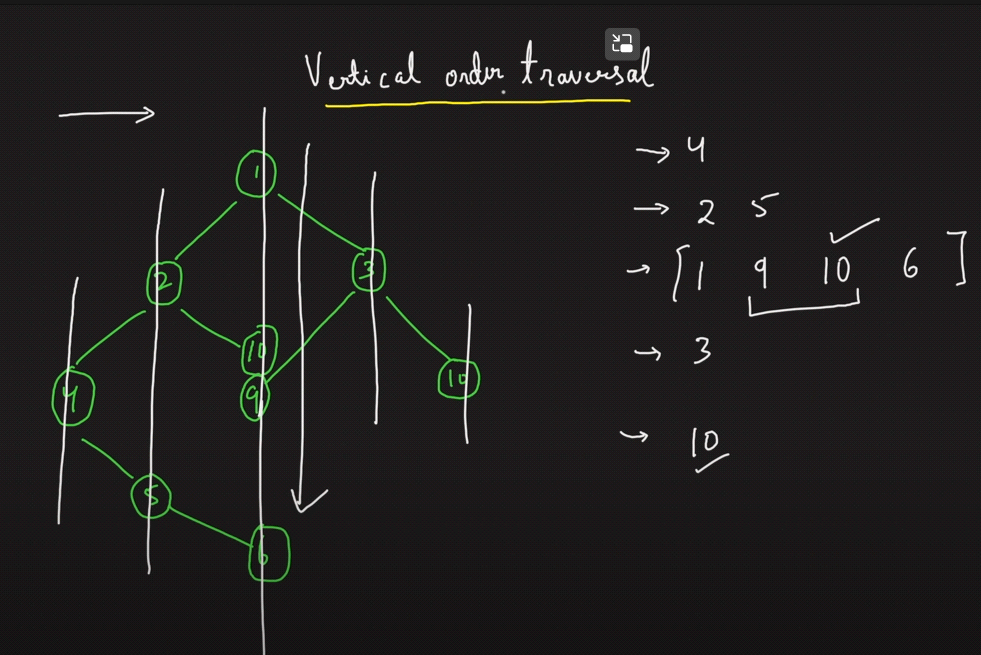 Vertical order traversal
1
2
3
10
9
4
10
5
6
→ 4
→ 2 5
→ [1 9 10 6]
→ 3
→ 10